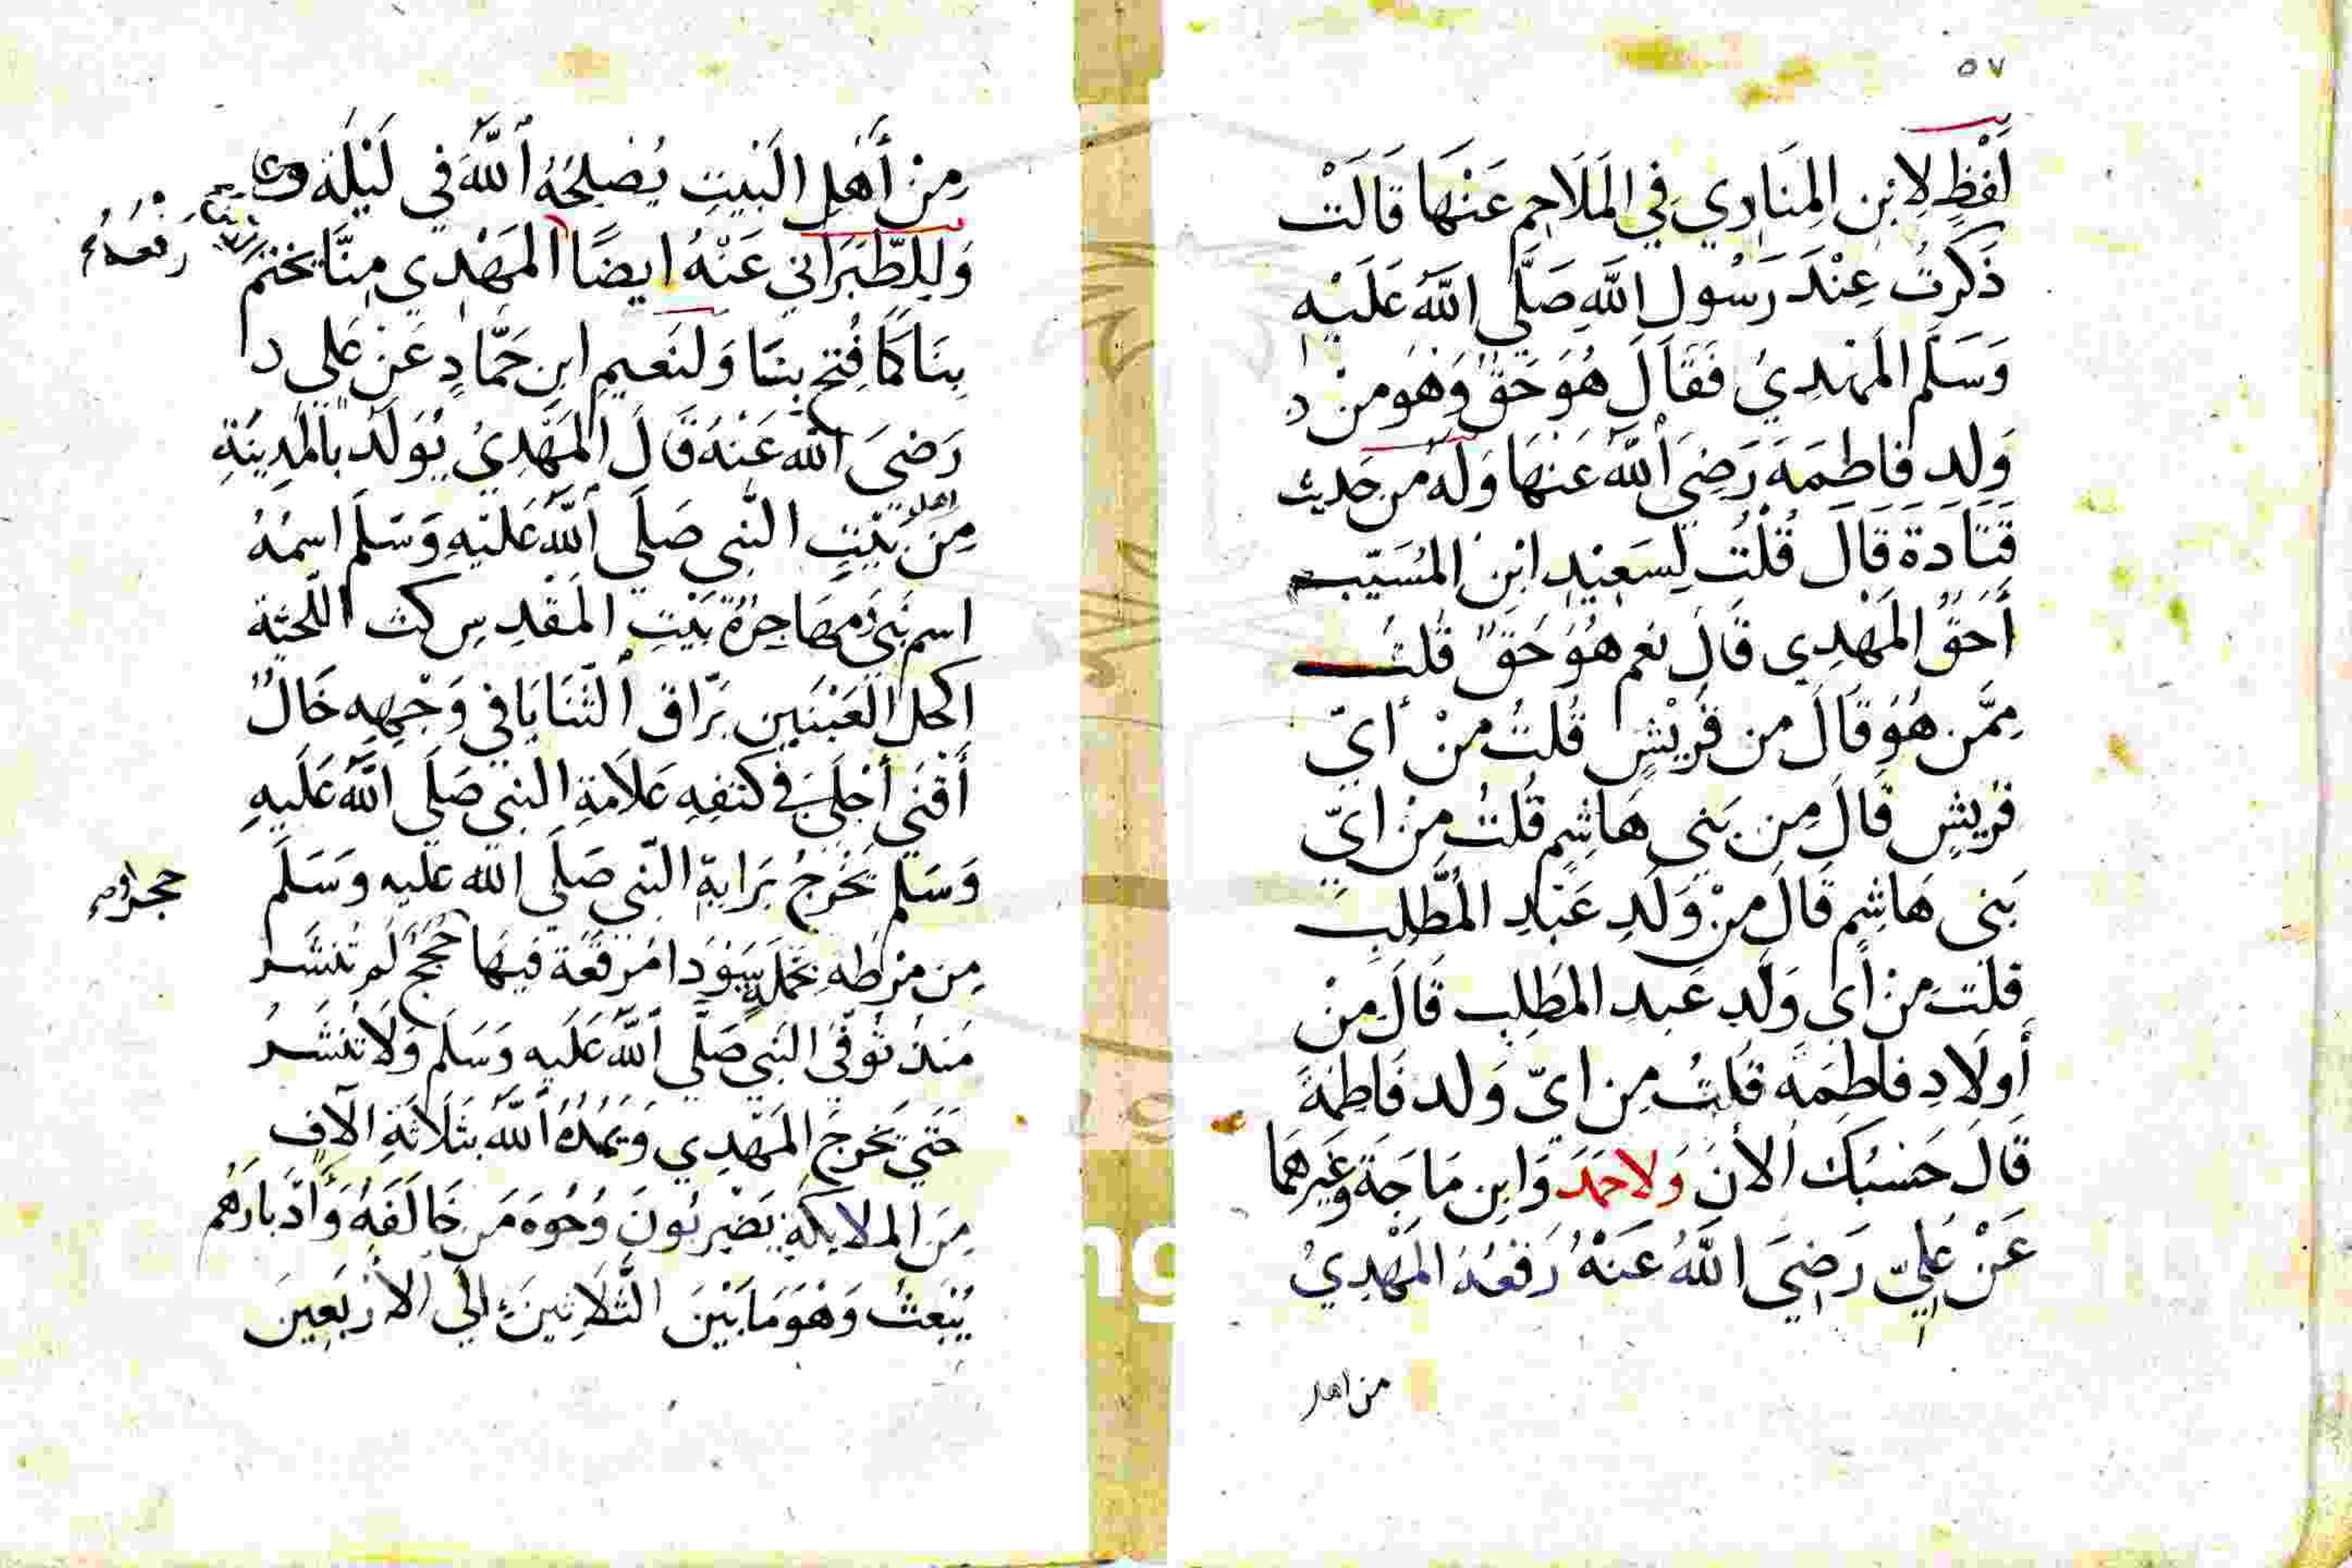 ٥٧
لَفْظٍ لِابْنِ المِنَادِي فِي المَلَاحِمِ عَنْهَا قَالَتْ
ذَكَرْتُ عِنْدَ رَسُولِ اللَّهِ صَلَّى اللَّهُ عَلَيْهِ
وَسَلَّمَ المَهْدِيُ فَقَالَ هُوَ حَقٌ وَهُوَ مِنْ
وَلدِ فَاطِمَةَ رَضِيَ اللَّهُ عَنْهَا وَلَهُ مِن حَدِيث
قَتَادَةَ قَالَ قُلْتُ لِسَعِيْدِ ابْنِ المُسَيّب
أَحَقٌ المَهْدِي قَالَ نَعَم هُوَ حَقٌ قلت
مِمَّن هُوَ قَالَ من قُرَيْشٍ قُلتُ مِنْ أَيّ
قُرَيْشٍ قَالَ مِن بَنِي هَاشِمٍ قُلتُ مِنْ أيّ
بَنِي هَاشِمٍ قَالَ مِنْ وَلَدِ عَبْدِ المُطَّلِبِ
قلت مِنْ أَي وَلَدِ عَبدِ المُطَلِبِ قَالَ مِنْ
أَولَادِ فَاطِمَةَ قُلتُ مِن ايّ وَلد فَاطِمَةَ
قَالَ حَسْبُكَ الأنَ وَلاحَمَدَ وَابنِ مَاجَة وَغَيرِهِمَا
عَنْ عَلِيّ رَضِيَ اللَّهُ عَنْهُ رَفَعُهُ المَهْدِيُ
من اهل
مِنْ أَهْلِ البَيْتِ يُصْلِحُهُ اللَّهُ في لَيْلَة
وَلِلطَّبَرَانِي عَنْهُ ايضًا المَهْدِي مِنَّا يختم
رفعه
بِنَا كَمَا فُتِحَ بِنَا وَلنَعيم ابنِ حَمَّادٍ عَنْ عَلي
رَضِيَ اللَّه عَنْهُ قَالَ المَهَدِيُ يُوَلَدُ بالمَدِينَةِ
اهل
مِنْ بَيْتِ النَّبِي صَلَى اللَّهُ عَلَيْهِ وَسَلَمَ اسمُهُ
اسم نَبِي مهَاجِرُهُ بَيْتِ المَقْدِسِ كث اللحيّة
اكحل العَيْنَينِ بَرّاق الثَّنَايَا فِي وَجْهِهِ خَالٌ
أَقْنَى أَجْلَى فِي كتفِهِ عَلَامَةِ النبي صَلَى اللَّهُ عَلَيهِ
وَسَلمَ يَخْرجُ بَرَايةِ النّبي صَلَى اللَّه عَليه وَسَلَمَ
مِن مِرْطِهِ مخملَةٍ سَوْدَا مُرَقَّعَة فِيهَا حُجج لَم تُنشَر
حجر
مُنذ تُوفّي النّبي صَلَّى اللَّهُ عَلَيهِ وَسَلَمَ وَلَا تُنشَرُ
حَتَّى يَخرجَ المَهّدِي وَيَمُدُهُ اللَّهُ بِثَلَاثَةِ الآفٍ
مِنَ الملايكَةِ يَضْربُونَ وُجُوهَ مَن خَالَفَهُ وَأَدْبَارَهُم
يُبْعَثُ وَهْوَ مَا بَيْنَ الثَّلَاثِينَ إلي الأرْبَعِينَ